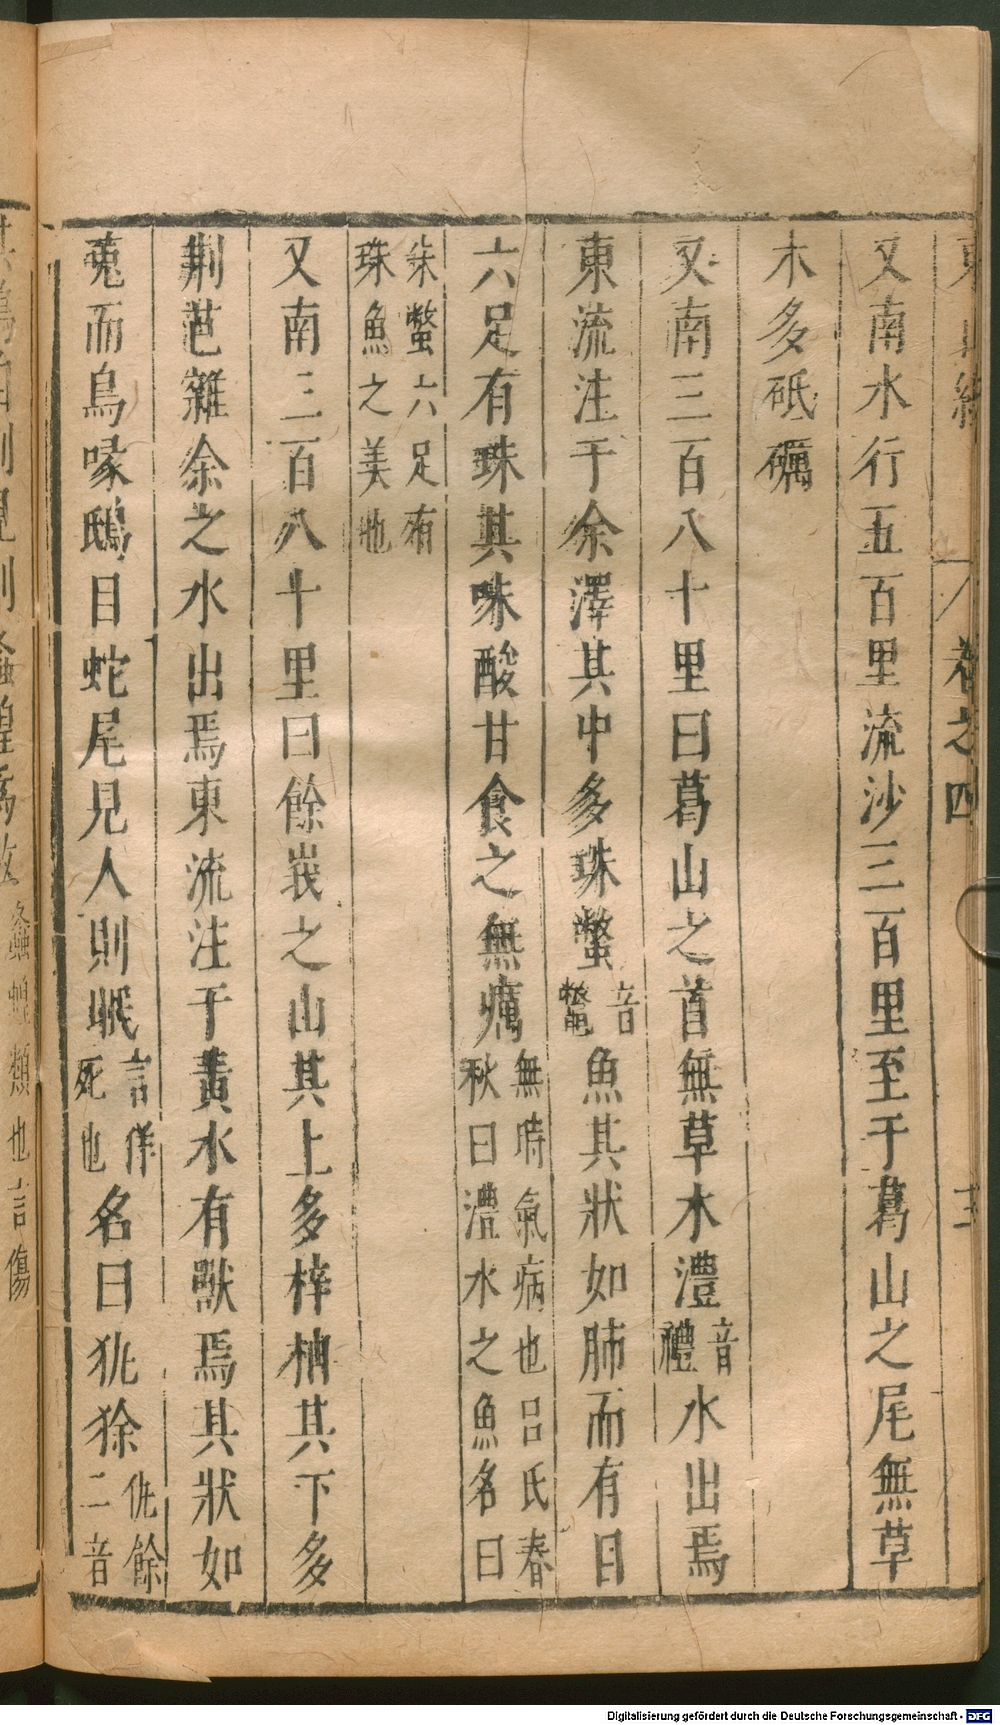 東山經 卷之四 三
又南水行五百里流沙三百里至于葛山之尾無草
木多砥礪
又南三百八十里曰葛山之首無草木澧音禮水出焉
東流注于余澤其中多珠蟞音鼈魚其狀如肺而有目
六足有珠其味酸甘食之無癘無時氣病也呂氏春秋曰澧水之魚名曰
朱蟞六足有珠魚之美也
又南三百八十里曰餘峩之山其上多梓柟其下多
荆芑雜余之水出焉東流注于黃水有獸焉其狀如
菟而鳥喙鴟目蛇尾見人則眠言佯死也名曰犰狳仇餘二音
螽蝗類也言傷
Digitalisierung gefördert durch die Deutsche Forschungsgemeinschaft - DFG